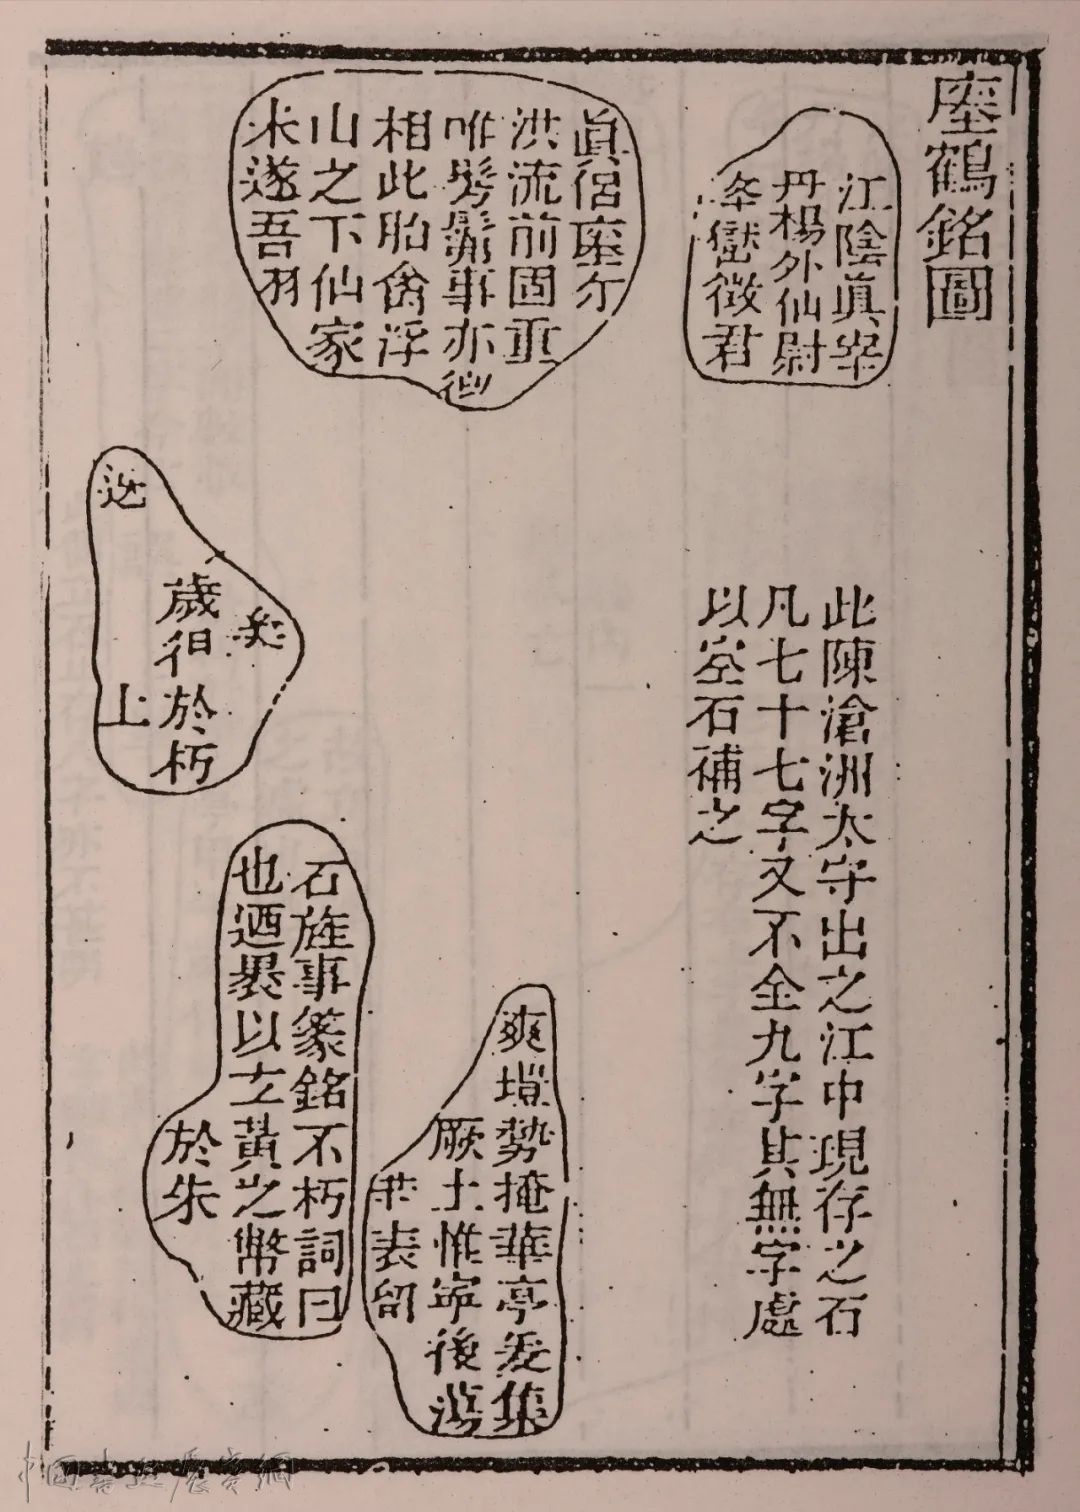 座鶴銘圖
江陰眞宰
丹楊外仙尉
夅嶽徵君
眞侶座尔
洪流前固重
唯髣髴事亦仰
相此胎禽浮
山之下仙家
未遂吾羽
此陳滄洲太守出之江中現存之石
凡七十七字又不全九字其無字處
以空石補之
矣
歲得於朽
上
石旌事篆銘不朽詞曰
也迺裹以玄黃之幣藏
於朱
爽塏勢掩華亭爰集
厥土惟寧後蕩
表留